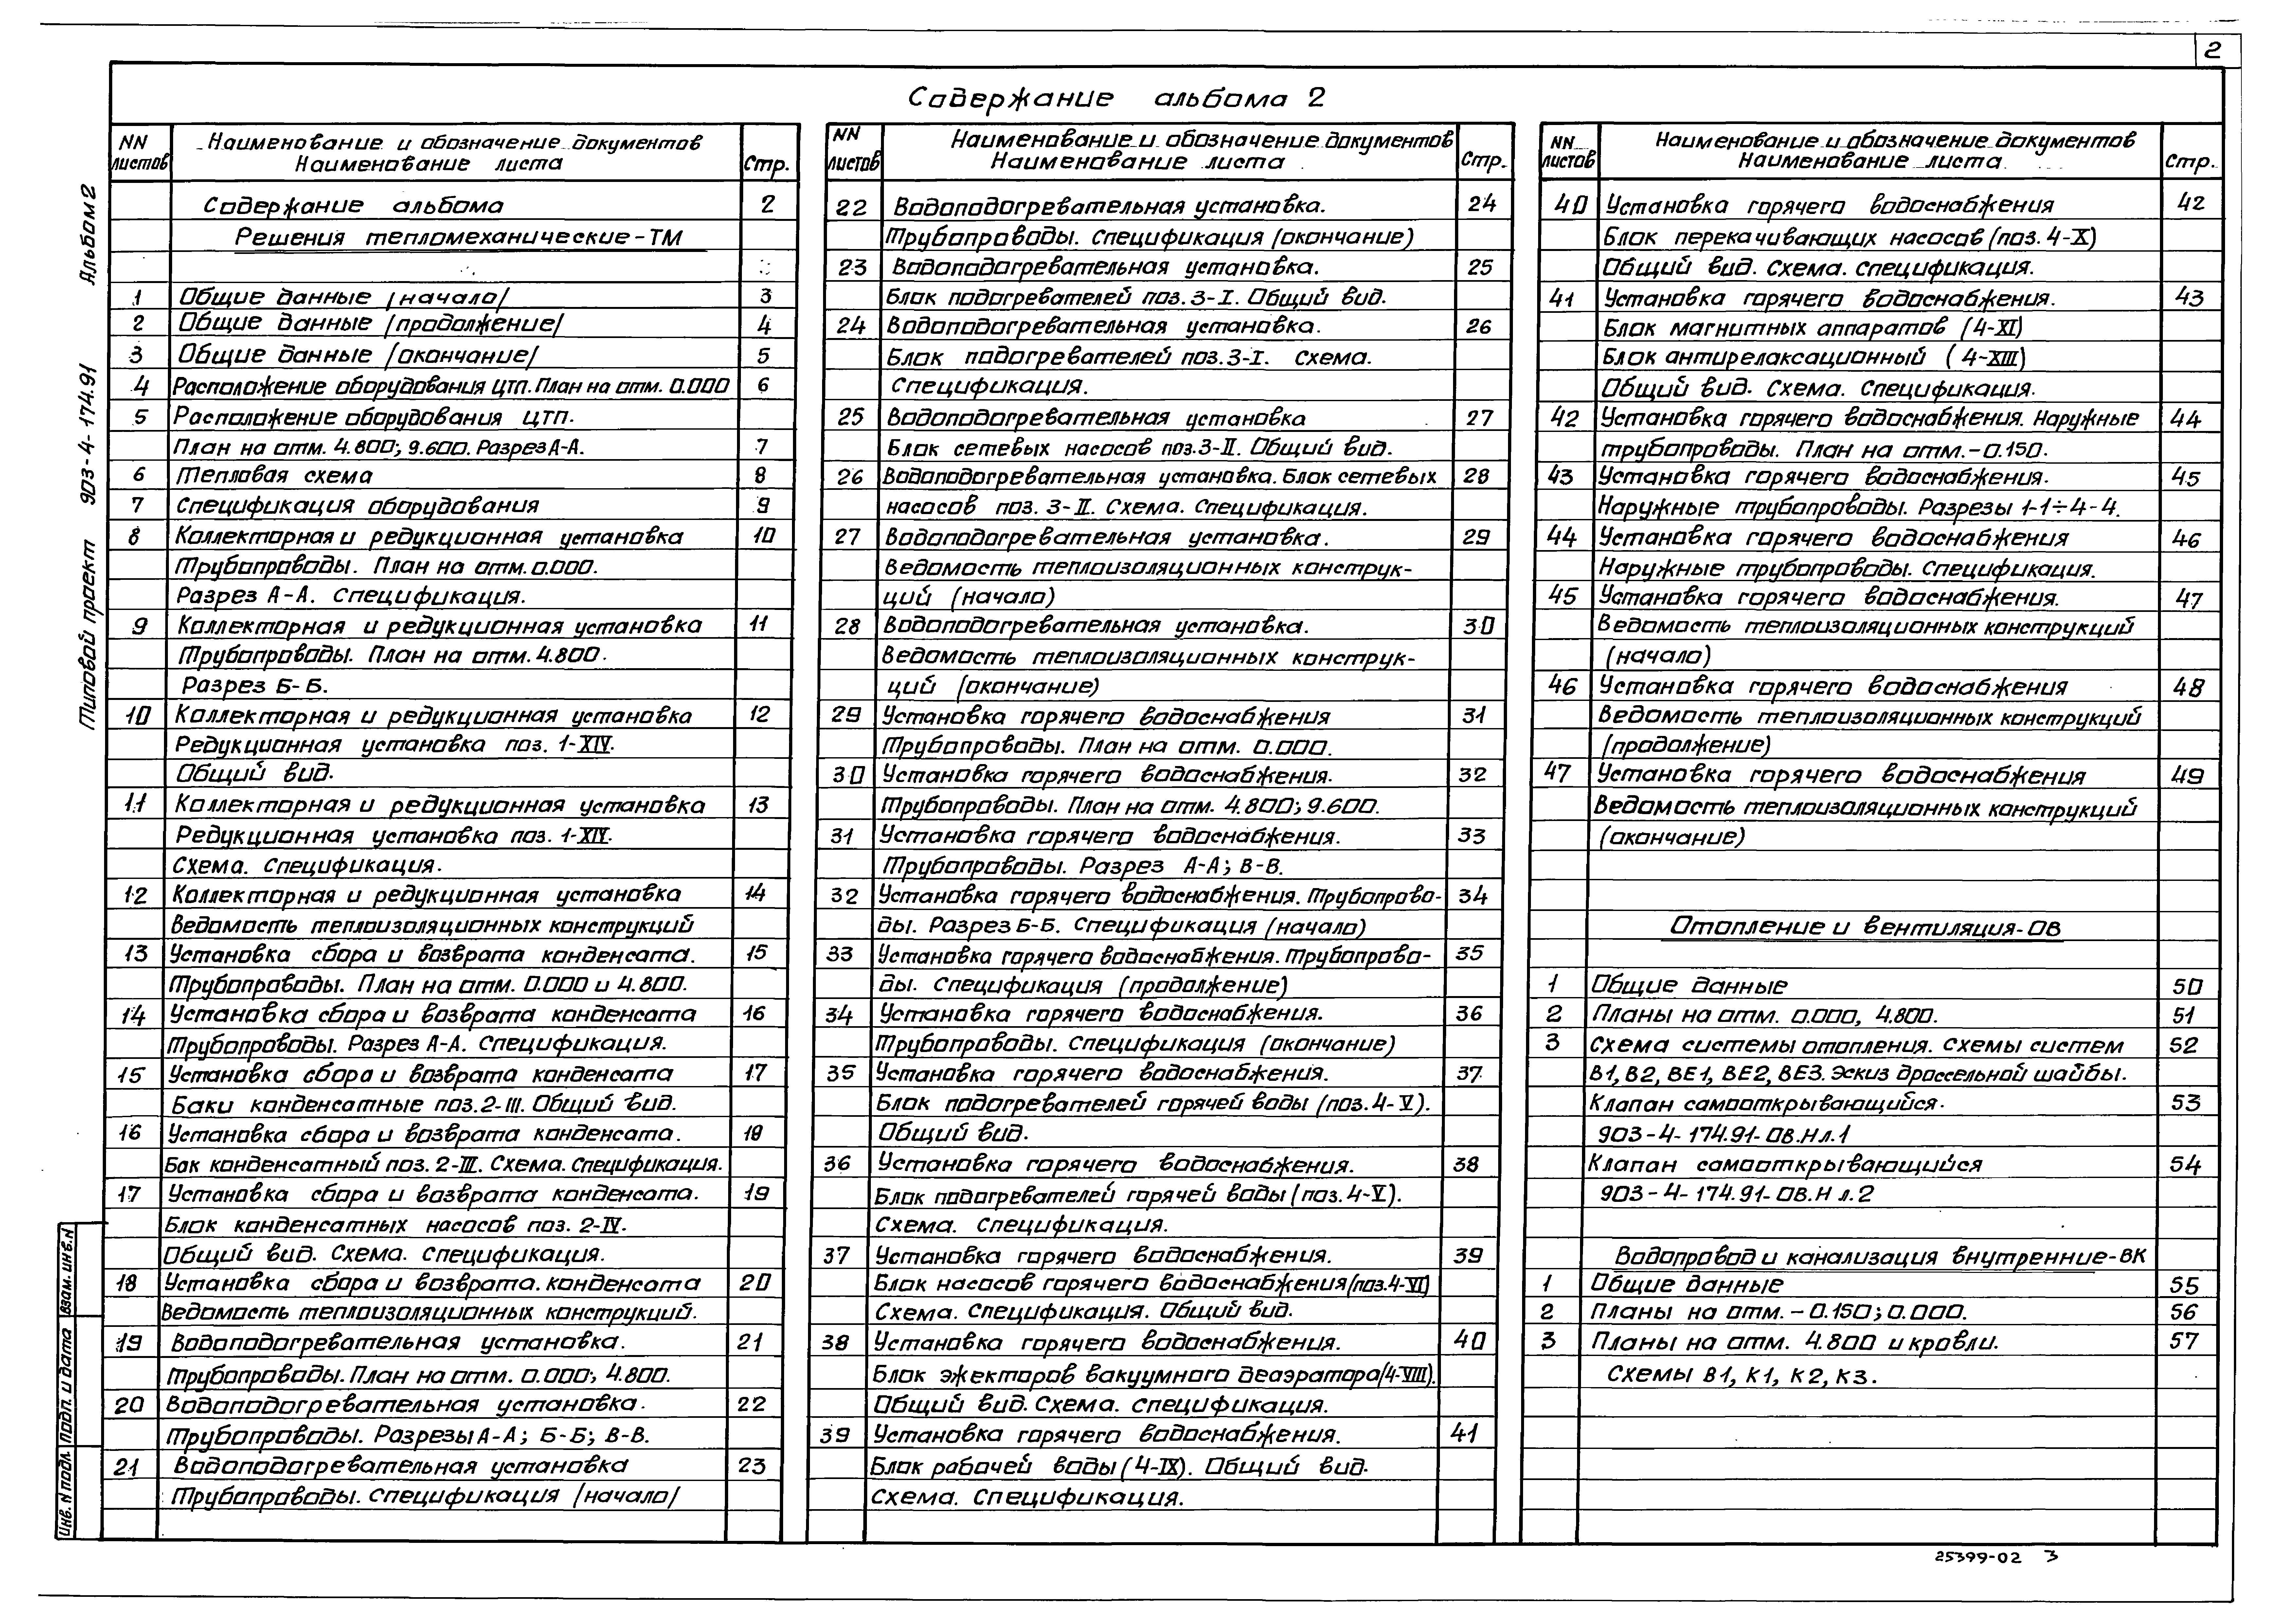 2
Содержание альбома 2
NN листов
Наименование и обозначение документов
Наименование листа
Стр.
Содержание альбома 2
Решения тепломеханические-ТМ
1 Общие данные /начало/ 3
2 Общие данные /продолжение/ 4
3 Общие данные /окончание/ 5
4 Расположение оборудования ЦТП. План на отм. 0.000 6
5 Расположение оборудования ЦТП.
План на отм. 4.800; 9.600. Разрез А-А. 7
6 Тепловая схема 8
7 Спецификация оборудования 9
8 Коллекторная и редукционная установка 10
Трубопроводы. План на отм. 0.000.
Разрез А-А. Спецификация.
9 Коллекторная и редукционная установка 11
Трубопроводы. План на отм. 4.800.
Разрез Б-Б.
10 Коллекторная и редукционная установка 12
Редукционная установка поз. 1-XIV.
Общий вид.
11 Коллекторная и редукционная установка 13
Редукционная установка поз. 1-XIV.
Схема. Спецификация.
12 Коллекторная и редукционная установка 14
Ведомость теплоизоляционных конструкций
13 Установка сбора и возврата конденсата. 15
Трубопроводы. План на отм. 0.000 и 4.800.
14 Установка сбора и возврата конденсата 16
Трубопроводы. Разрез А-А. Спецификация.
15 Установка сбора и возврата конденсата 17
Баки конденсатные поз. 2-III. Общий вид.
16 Установка сбора и возврата конденсата. 18
Бак конденсатный поз. 2-III. Схема. Спецификация.
17 Установка сбора и возврата конденсата. 19
Блок конденсатных насосов поз. 2-IV.
Общий вид. Схема. Спецификация.
18 Установка сбора и возврата. конденсата 20
Ведомость теплоизоляционных конструкций.
19 Водоподогревательная установка. 21
Трубопроводы. План на отм. 0.000; 4.800.
20 Водоподогревательная установка. 22
Трубопроводы. Разрезы А-А; Б-Б; В-В.
21 Водоподогревательная установка 23
Трубопроводы. Спецификация /начало/
NN листов
Наименование и обозначение документов
Наименование листа
Стр.
22 Водоподогревательная установка. 24
Трубопроводы. Спецификация (окончание)
23 Водоподогревательная установка. 25
Блок подогревателей поз. 3-I. Общий вид.
24 Водоподогревательная установка. 26
Блок подогревателей поз. 3-I. Схема.
Спецификация.
25 Водоподогревательная установка 27
Блок сетевых насосов поз. 3-II. Общий вид.
26 Водоподогревательная установка. Блок сетевых 28
насосов поз. 3-II. Схема. Спецификация.
27 Водоподогревательная установка. 29
Ведомость теплоизоляционных конструк-
ций (начало)
28 Водоподогревательная установка. 30
Ведомость теплоизоляционных конструк-
ций (окончание)
29 Установка горячего водоснабжения 31
Трубопроводы. План на отм. 0.000.
30 Установка горячего водоснабжения. 32
Трубопроводы. План на отм. 4.800; 9.600.
31 Установка горячего водоснабжения. 33
Трубопроводы. Разрез А-А; В-В.
32 Установка горячего водоснабжения. Трубопрово- 34
ды. Разрез Б-Б. Спецификация (начало)
33 Установка горячего водоснабжения. Трубопрово- 35
ды. Спецификация (продолжение)
34 Установка горячего водоснабжения. 36
Трубопроводы. Спецификация (окончание)
35 Установка горячего водоснабжения. 37
Блок подогревателей горячей воды (поз. 4-V).
Общий вид.
36 Установка горячего водоснабжения. 38
Блок подогревателей горячей воды (поз. 4-V).
Схема. Спецификация.
37 Установка горячего водоснабжения. 39
Блок насосов горячего водоснабжения (поз. 4-VI)
Схема. Спецификация. Общий вид.
38 Установка горячего водоснабжения. 40
Блок эжекторов вакуумного деаэратора (4-VIII).
Общий вид. Схема. Спецификация.
39 Установка горячего водоснабжения. 41
Блок рабочей воды (4-IX). Общий вид.
Схема. Спецификация.
NN листов
Наименование и обозначение документов
Наименование листа
Стр.
40 Установка горячего водоснабжения 42
Блок перекачивающих насосов (поз. 4-X)
Общий вид. Схема. Спецификация.
41 Установка горячего водоснабжения. 43
Блок магнитных аппаратов (4-XI)
Блок антирелаксационный (4-XIII)
Общий вид. Схема. Спецификация.
42 Установка горячего водоснабжения. Наружные 44
трубопроводы. План на отм.-0.150.
43 Установка горячего водоснабжения. 45
Наружные трубопроводы. Разрезы 1-1÷4-4.
44 Установка горячего водоснабжения 46
Наружные трубопроводы. Спецификация.
45 Установка горячего водоснабжения. 47
Ведомость теплоизоляционных конструкций
(начало)
46 Установка горячего водоснабжения 48
Ведомость теплоизоляционных конструкций
(продолжение)
47 Установка горячего водоснабжения 49
Ведомость теплоизоляционных конструкций
(окончание)
Отопление и вентиляция-ОВ
1 Общие данные 50
2 Планы на отм. 0.000, 4.800. 51
3 Схема системы отопления. Схемы систем 52
В1, В2, ВЕ1, ВЕ2, ВЕ3. Эскиз дроссельной шайбы.
Клапан самооткрывающийся. 53
903-4-174.91-ОВ.Н л.1
Клапан самооткрывающийся 54
903-4-174.91-ОВ.Н л.2
Водопровод и канализация внутренние-ВК
1 Общие данные 55
2 Планы на отм. -0.150; 0.000. 56
3 Планы на отм. 4.800 и кровли. 57
Схемы В1, К1, К2, К3.
Типовой проект 903-4-174.91 Альбом 2
Инв. N подл. Подп. и дата Взам. инв. N
25399-02 3